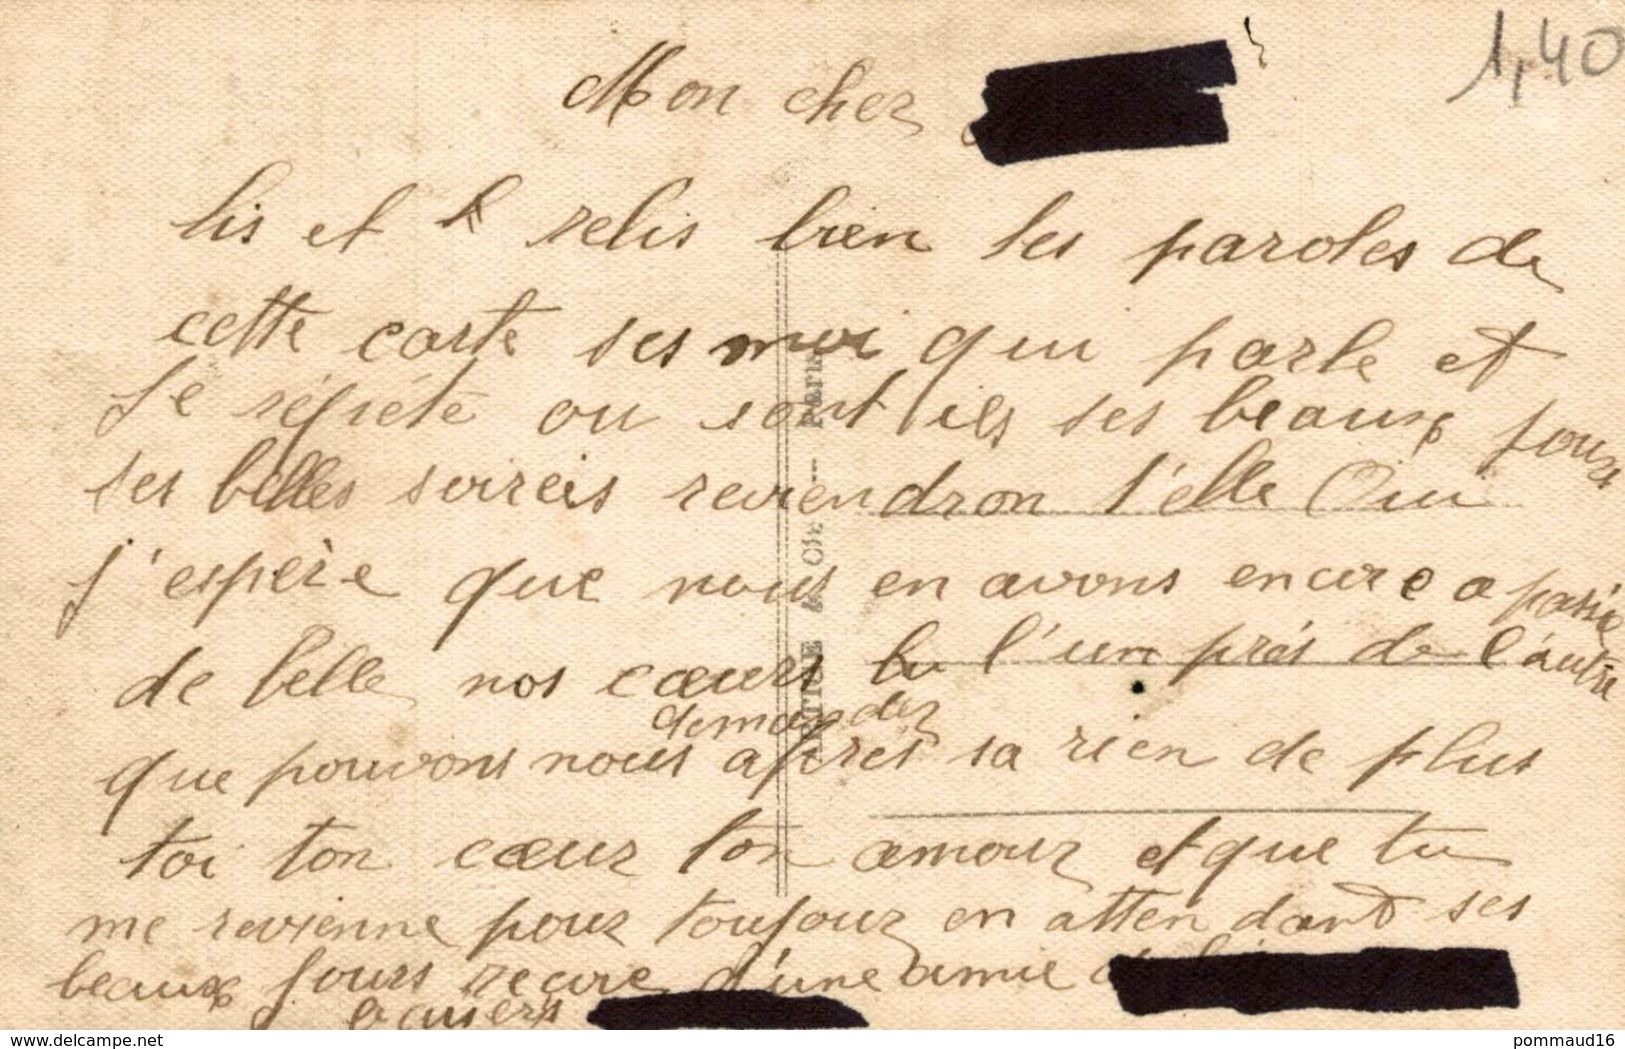 1,40
Mon cher
lis et relis bien les paroles de
cette carte ses moi qui parle et
te répété ou sont ils ses beaux jours
ses belles soireis reviendron t'elle Oui
j'espère que nous en avons encore a
de belle nos cœurs l'un près de l'autre
demander
que pouvons nous après sa rien de plus
toi ton cœur ton amour et que tu
me revienne pour toujour en attendant ses
beaux jours reçoie d'une amie
baisers
ARTIGE & Cie -- Paris
www.delcampe.net
pommaud16